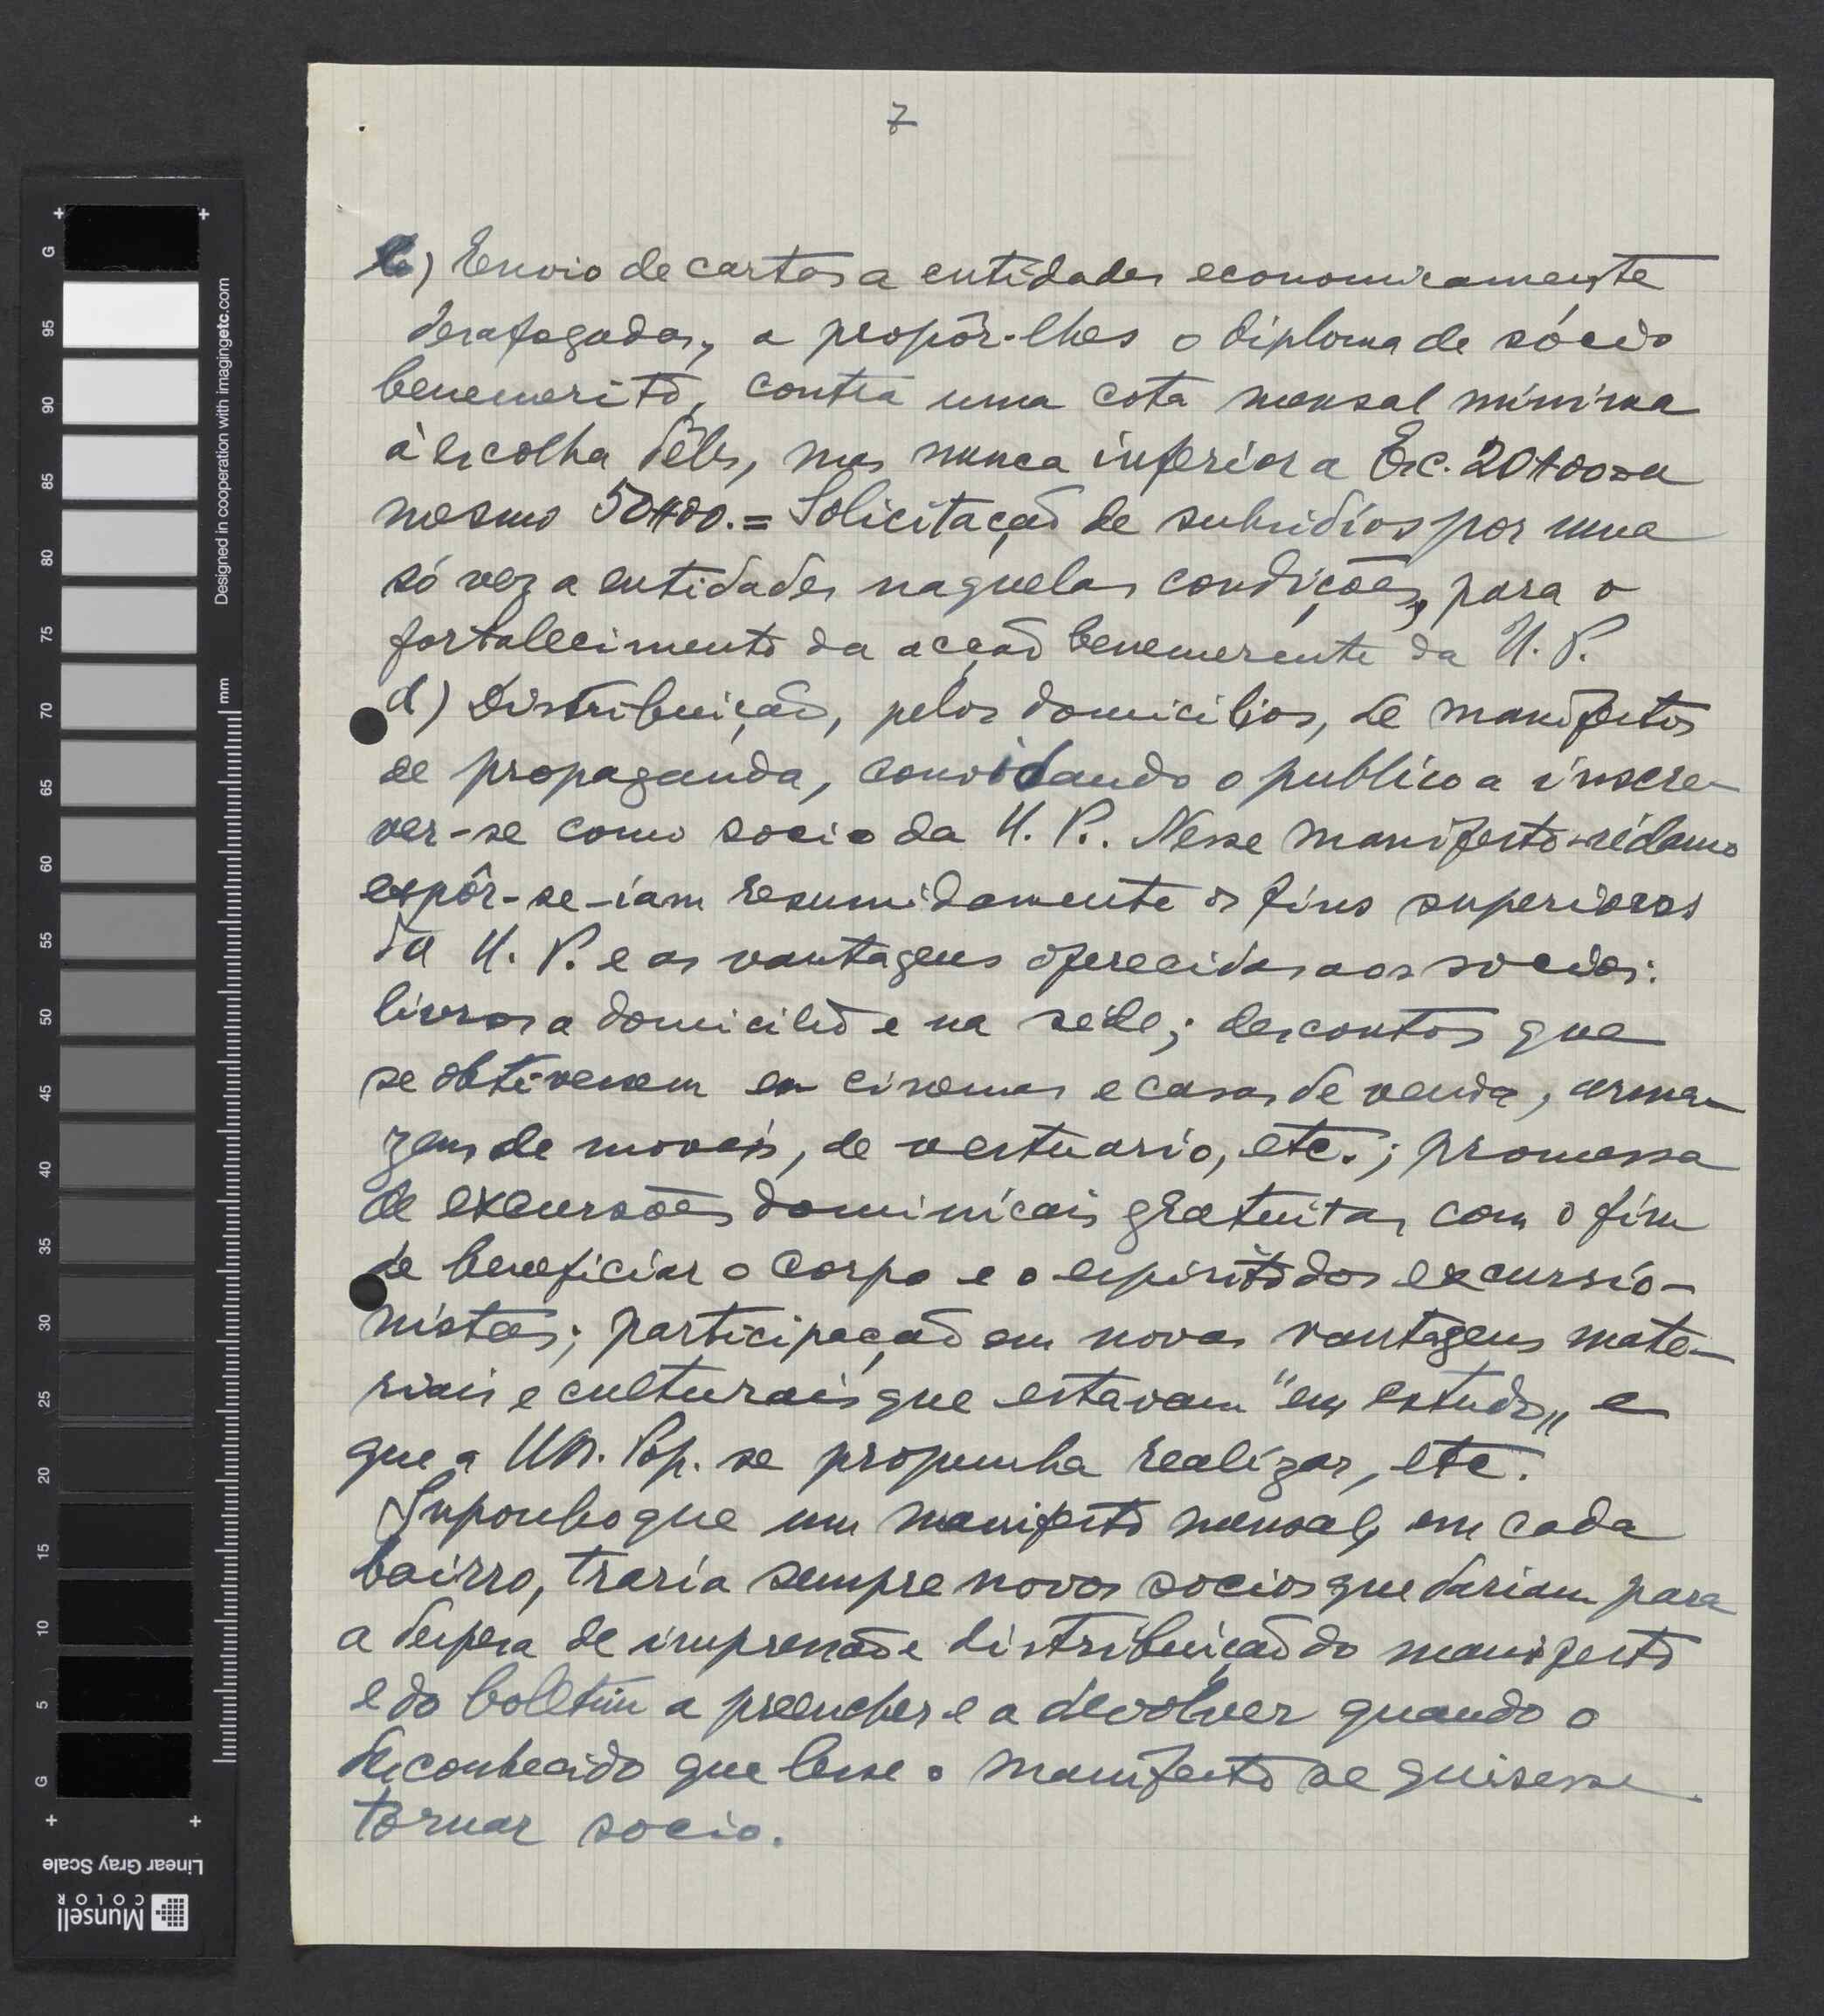 7
c) Envio de cartas a entidades economicamente
desafogadas, a propôr-lhes o diploma de sócio
benemerito, contra uma cota mensal minima
à escolha dêles, mas nunca inferior a Esc. 20$00 ou
mesmo 50$00. = Solicitação de subsidios por uma
só vez a entidades naquelas condições, para o
fortalecimento da acção benemerente da U. P.
d) Distribuição, pelos domicilios, de manifestos
de propaganda, convidando o publico a inscre-
ver-se como socio da U. P.. Nesse manifesto-réclamo
expôr-se-iam resumidamente os fins superiores
da U. P. e as vantagens oferecidas aos socios:
livros a domicilio e na séde; descontos que
se obtivessem em cinemas e casas de venda, arma-
zens de moveis, de vestuario, etc.; promessa
de excursões dominicais gratuitas com o fim
de beneficiar o corpo e o espirito dos excursio-
nistas; participação em novas vantagens mate-
riais e culturais que estavam "em estudo„ e
que a Un. Pop. se propunha realizar, etc.
Suponho que um manifesto mensal, em cada
bairro, traria sempre novos socios que dariam para
a despesa de impressão e distribuição do manifesto
e do boletim a preencher e a devolver quando o
desconhecido que lesse o manifesto se quisesse
tornar socio.
G
95
90
85
80
75
70
65
60
55
50
45
40
35
30
25
20
15
10
5
G
mm
Designed in cooperation with imagingetc.com
Linear Gray Scale
Munsell
COLOR